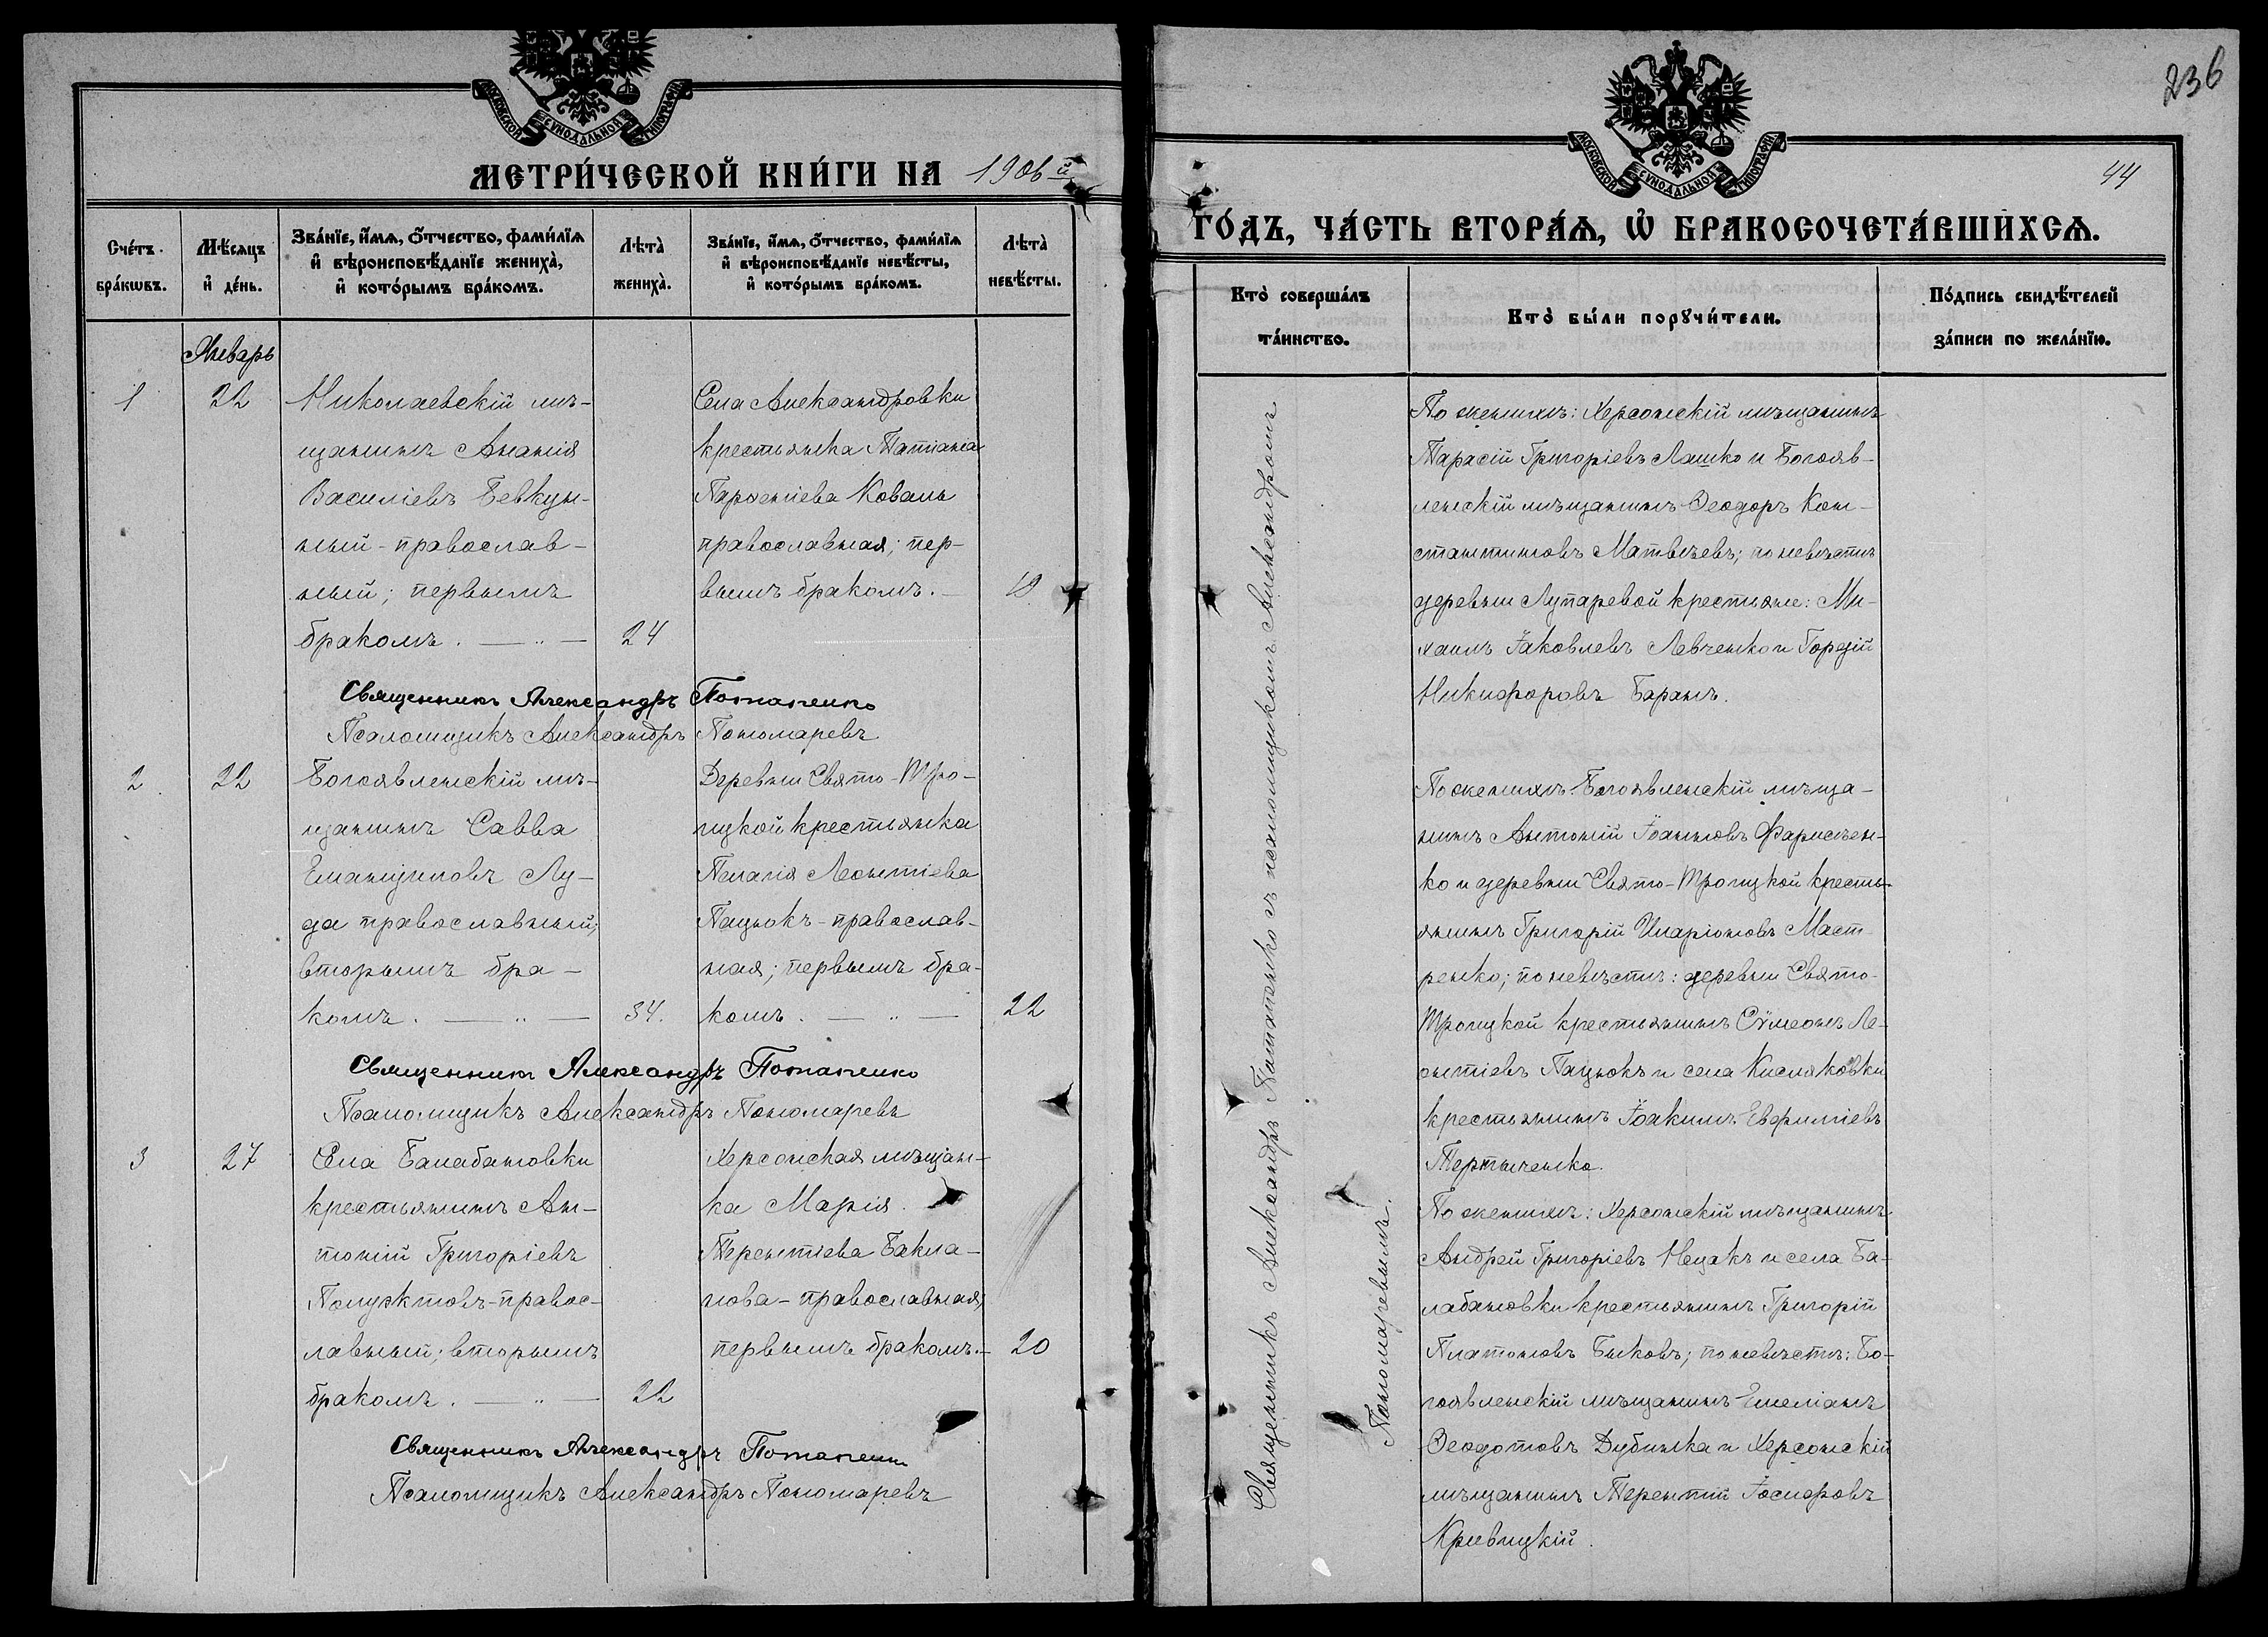 МОСКОВСКОЙ СУНОДАЛЬНОЙ ТИПОГРАФІИ
МЕТРИ́ЧЕСКОЙ КНИ́ГИ НА 1906й
Сче́тъ бра́кѡвъ.
Мѣ́сѧцъ и҆ де́нь.
Зва́нїе, и҆́мѧ, ѻ҆́тчество, фами́лїѧ и҆ вѣроисповѣ́данїе жениха̀, и҆ кото́рымъ бра́комъ.
Лѣта̀ жениха̀.
Зва́нїе, и҆́мѧ, ѻ҆́тчество, фами́лїѧ и҆ вѣроисповѣ́данїе невѣ́сты, и҆ кото́рымъ бра́комъ.
Лѣта̀ невѣ́сты.
Январь
1
22
Николаевскій мѣ-
щанинъ Ананія
Василіевъ Бевкун-
ный - православ-
ный; первымъ
бракомъ. — „ —
24
Села Александровки
крестьянка Татіана
Парѳеніева Коваль
православная; пер-
вымъ бракомъ. —
19
Священникъ Александръ Потапенко
Псаломщикъ Александръ Пономаревъ
2
22
Богоявленскій мѣ-
щанинъ Савва
Емануиловъ Лу-
да православный;
вторымъ бра-
комъ. — „ —
34.
Деревни Свято-Тро-
ицкой крестьянка
Пелагія Леонтіева
Пацюкъ - православ-
ная; первымъ бра-
комъ. — „ —
22
Священникъ Александръ Потапенко
Псаломщикъ Александръ Пономаревъ
3
27
Села Балабановки
крестьянинъ Ан-
тоній Григоріевъ
Полуэктовъ - правос-
лавный; вторымъ
бракомъ. — „ —
22
Херсонская мѣщан-
ка Марія
Терентіева Бакла-
нова - православная,
первымъ бракомъ. —
20
Священникъ Александръ Потапенко
Псаломщикъ Александръ Пономаревъ
236
МОСКОВСКОЙ СУНОДАЛЬНОЙ ТИПОГРАФІИ
44
ГО́ДЪ, ЧА́СТЬ ВТОРА́Ѧ, Ѡ҆ БРАКОСОЧЕТА́ВШИХСѦ.
Кто̀ соверша́лъ та́инство.
Кто̀ бы́ли порꙋчи́тели.
По́дпись свидѣ́телей за́писи по жела́нїю.
Священникъ Александръ Потапенко съ псаломщикомъ Александромъ
Пономаревымъ.
По женихѣ: Херсонскій мѣщанинъ
Тарасій Григоріевъ Лашко и Богояв-
ленскій мѣщанинъ Ѳеодоръ Кон-
стантиновъ Матвѣевъ; по невѣстѣ
деревни Лупаревой крестьяне: Ми-
хаилъ Іаковлевъ Левченко и Гордій
Никифоровъ Баранъ.
По женихѣ: Богоявленскій мѣща-
нинъ Антоній Іоанновъ
ко и деревни Свято-Троицкой кресть-
янинъ Григорій Иларіоновъ Маст-
ренко; по невѣстѣ: деревни Свято-
Троицкой крестьянинъ Сѵмеонъ Ле-
онтіевъ Пацюкъ и села Кисляковки
крестьянинъ Іоакимъ Евфиміевъ
Тертыченко.
По женихѣ: Херсонскій мѣщанинъ
Андрей Григоріевъ и села Ба-
лабановки крестьянинъ Григорій
Платоновъ Быковъ; по невѣстѣ: Бо-
гоявленскій мѣщанинъ Емеліанъ
Ѳеодотовъ Дубинка и Херсонскій
мѣщанинъ Терентій Іосифовъ
Кривицкій.